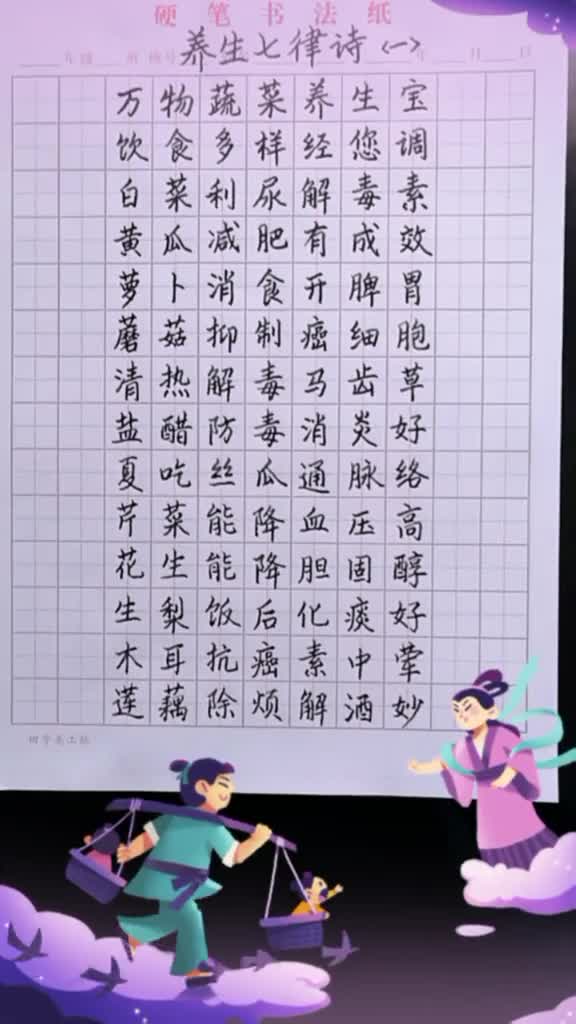 硬笔书法纸
养生七律诗〈一〉
万物蔬菜养生宝
饮食多样经您调
白菜利尿解毒素
黄瓜减肥有成效
萝卜消食开脾胃
蘑菇抑制癌细胞
清热解毒马齿草
盐醋防毒消炎好
夏吃丝瓜通脉络
芹菜能降血压高
花生能降胆固醇
生梨饭后化痰好
木耳抗癌素中荤
莲藕除烦解酒妙